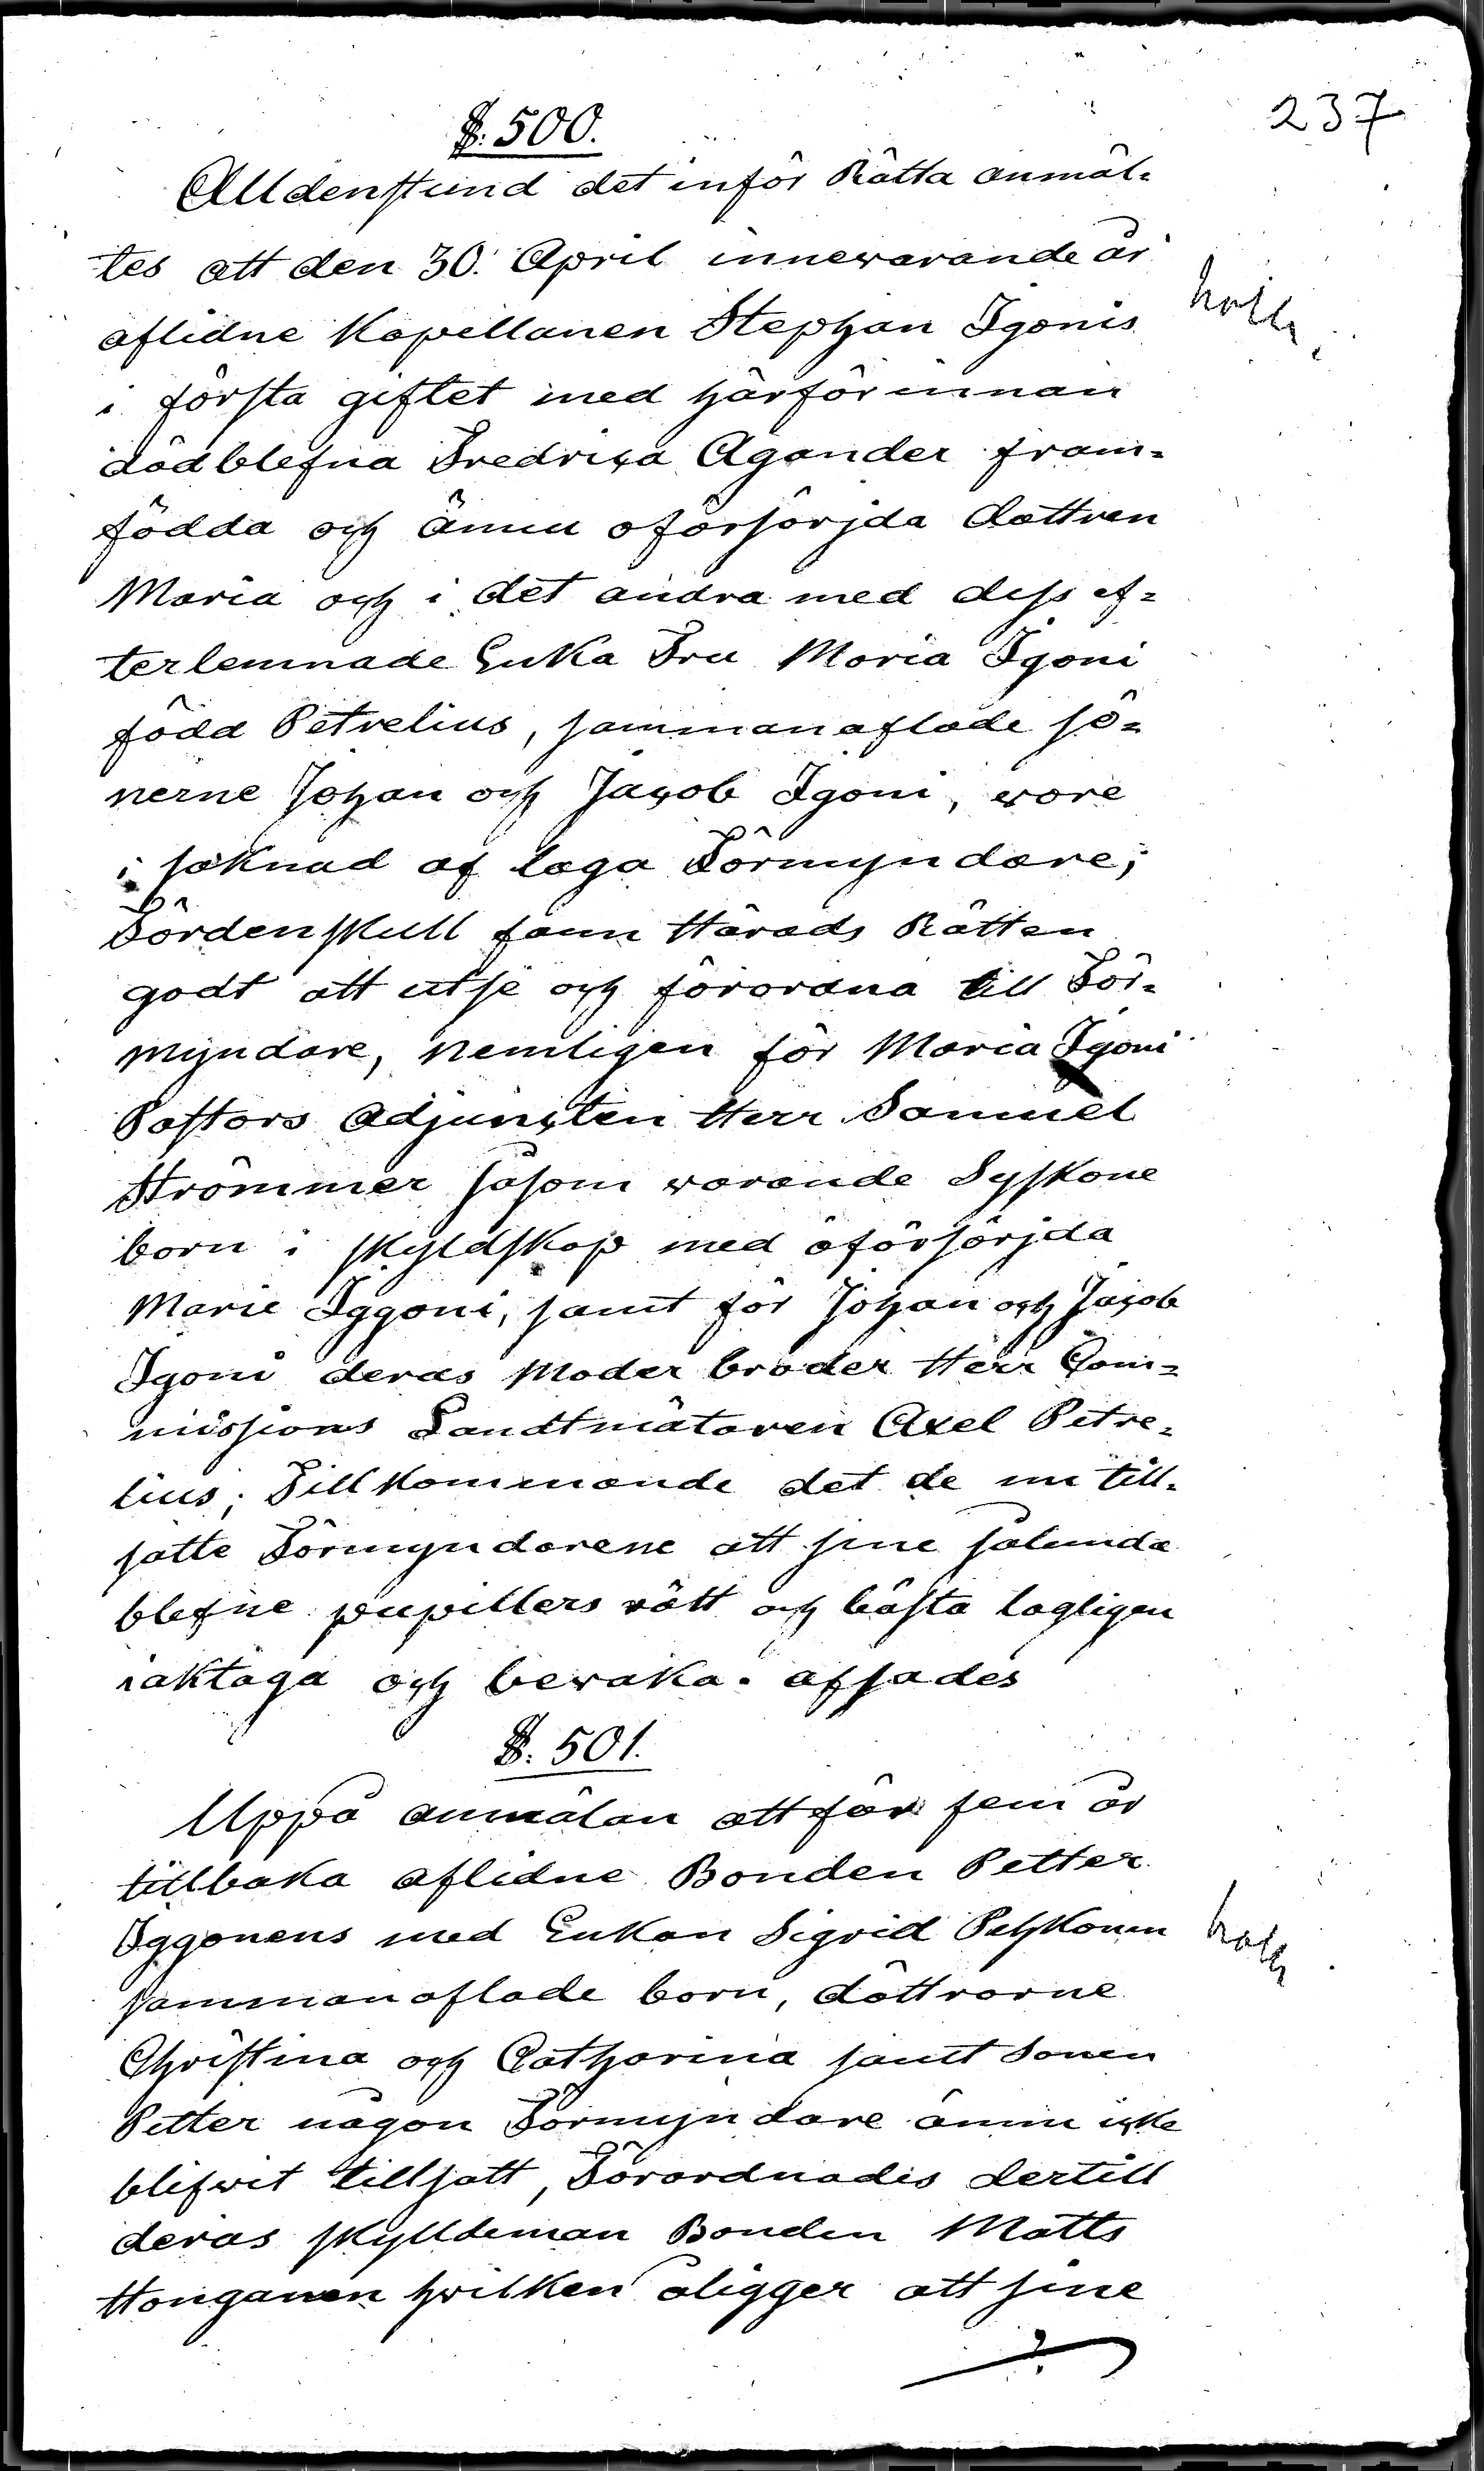 237
§. 500.
Alldenstund det inför Rätta anmäl=
tes att den 30. April innewarande år
aflidne Kapellanen Stephan Igonis
i första giftet med härförinnan
dödblefna Fredrica Agander fram=
födda och ännu oförsörjda dottren
Maria och i det andra med dess ef=
terlemnade Enka Fru Maria Igoni
född Petrelius, sammanaflade sö=
nerne Johan och Jacob Igoni, wore
i saknad af laga Förmyndare;
Fördenskull fann Härads Rätten
godt att utse och förordna till För=
myndare, nemligen för Maria Igoni
Pastors Adjuncten Herr Samuel
Strömmer såsom warande Syskone
born i skyldskap med oförsörjda
Marie Iggoni, samt för Johan och Jacob
Igoni deras Moder broder Herr Com=
missions Landtmätaren Axel Petre=
lius; Tillkommande det de nu till=
satte Förmyndarene att sine sålunda
blefne pupillers rätt och bästa lagligen
iakttaga och bewaka. afsades
§. 501.
Uppå anmälan att för fem år
tillbaka aflidne Bonden Petter
Iggonens med Enkan Sigrid Pehkonin
sammanaflade born, döttrarne
Christina och Catharina samt Sonen
Petter någon Förmyndare ännu icke
blifwit tillsatt, Förordnades dertill
deras skyldeman Bonden Matts
Honganen hwilken åligger att sine